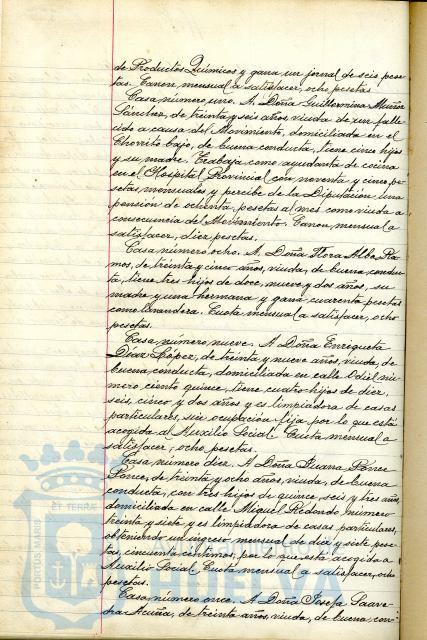 de Productos Químicos y gana un jornal de seis pese-
tas. Canon mensual a satisfacer, ocho pesetas
Casa número uno. A Doña Guillermina Muñoz
Sánchez, de treinta y seis años, viuda de un falle-
cido a causa del Movimiento, domiciliada en el
Chorrito bajo, de buena conducta, tiene cinco hijos
y su madre. Trabaja como ayudanta de cocina
en el Hospital Provincial con noventa y cinco pe-
setas mensuales y percibe de la Diputación una
pensión de ochenta pesetas al mes como viuda a
consecuencia del Movimiento. Canon mensual a
satisfacer, diez pesetas.
Casa número ocho. A Doña Flora Alba Ra-
mos, de treinta y cinco años, viuda, de buena conduc-
ta, tiene tres hijos de doce, nueve y dos años, su
madre y una hermana y gana cuarenta pesetas
como lavandera. Cuota mensual a satisfacer, ocho
pesetas.
Casa número nueve. A Doña Enriqueta
Díaz López, de treinta y nueve años, viuda, de
buena conducta, domiciliada en calle Odiel nú-
mero ciento quince, tiene cuatro hijos de diez,
seis, cinco y dos años y es limpiadora de casas
particulares, sin ocupación fija por lo que está
acogida al Auxilio Social. Cuota mensual a
satisfacer, ocho pesetas.
Casa número diez. A Doña Juana Ponce
Ponce, de treinta y ocho años, viuda, de buena
conducta, con tres hijos de quince, seis y tres años,
domiciliada en calle Miguel Redondo número
treinta y siete y es limpiadora de casas particulares,
obteniendo un ingreso mensual de diez y siete pese-
tas, cincuenta céntimos, por lo que está acogida a
Auxilio Social. Cuota mensual a satisfacer, ocho
pesetas.
Casa número once. A Doña Josefa Saave-
dra Acuña, de treinta años, viuda, de buena con-
PORTUS MARIS
ET TERRAE
HUELVA